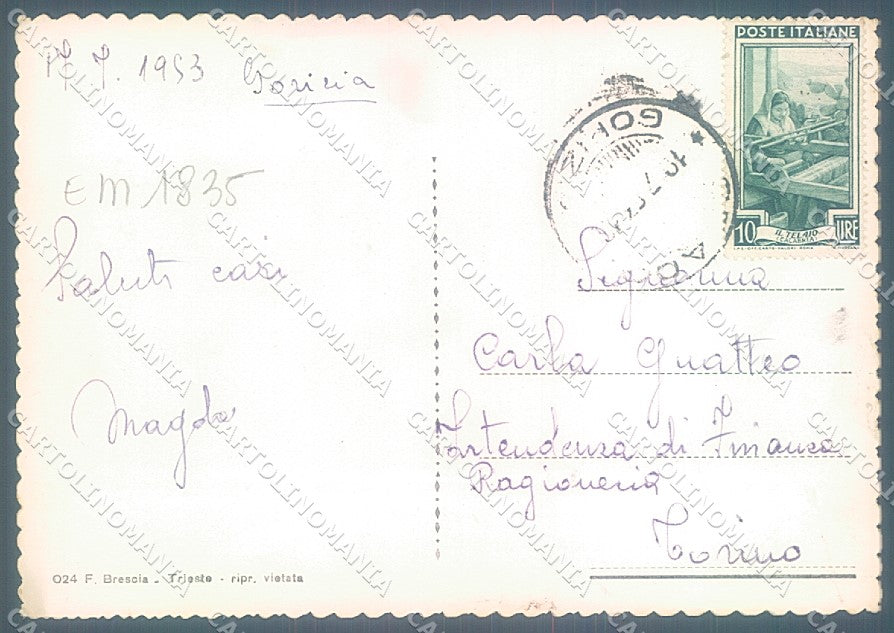 7. 7. 1953 Gorizia
EM 1835
Saluti cari
Magda
024 F. Brescia - Trieste - ripr. vietata
POSTE ITALIANE
IL TELAIO
(CALABRIA)
10 LIRE
GORIZIA
Signorina
Carla Guatteo
Intendenza di Finanza
Ragioneria
Torino
CARTOLINOMANIA